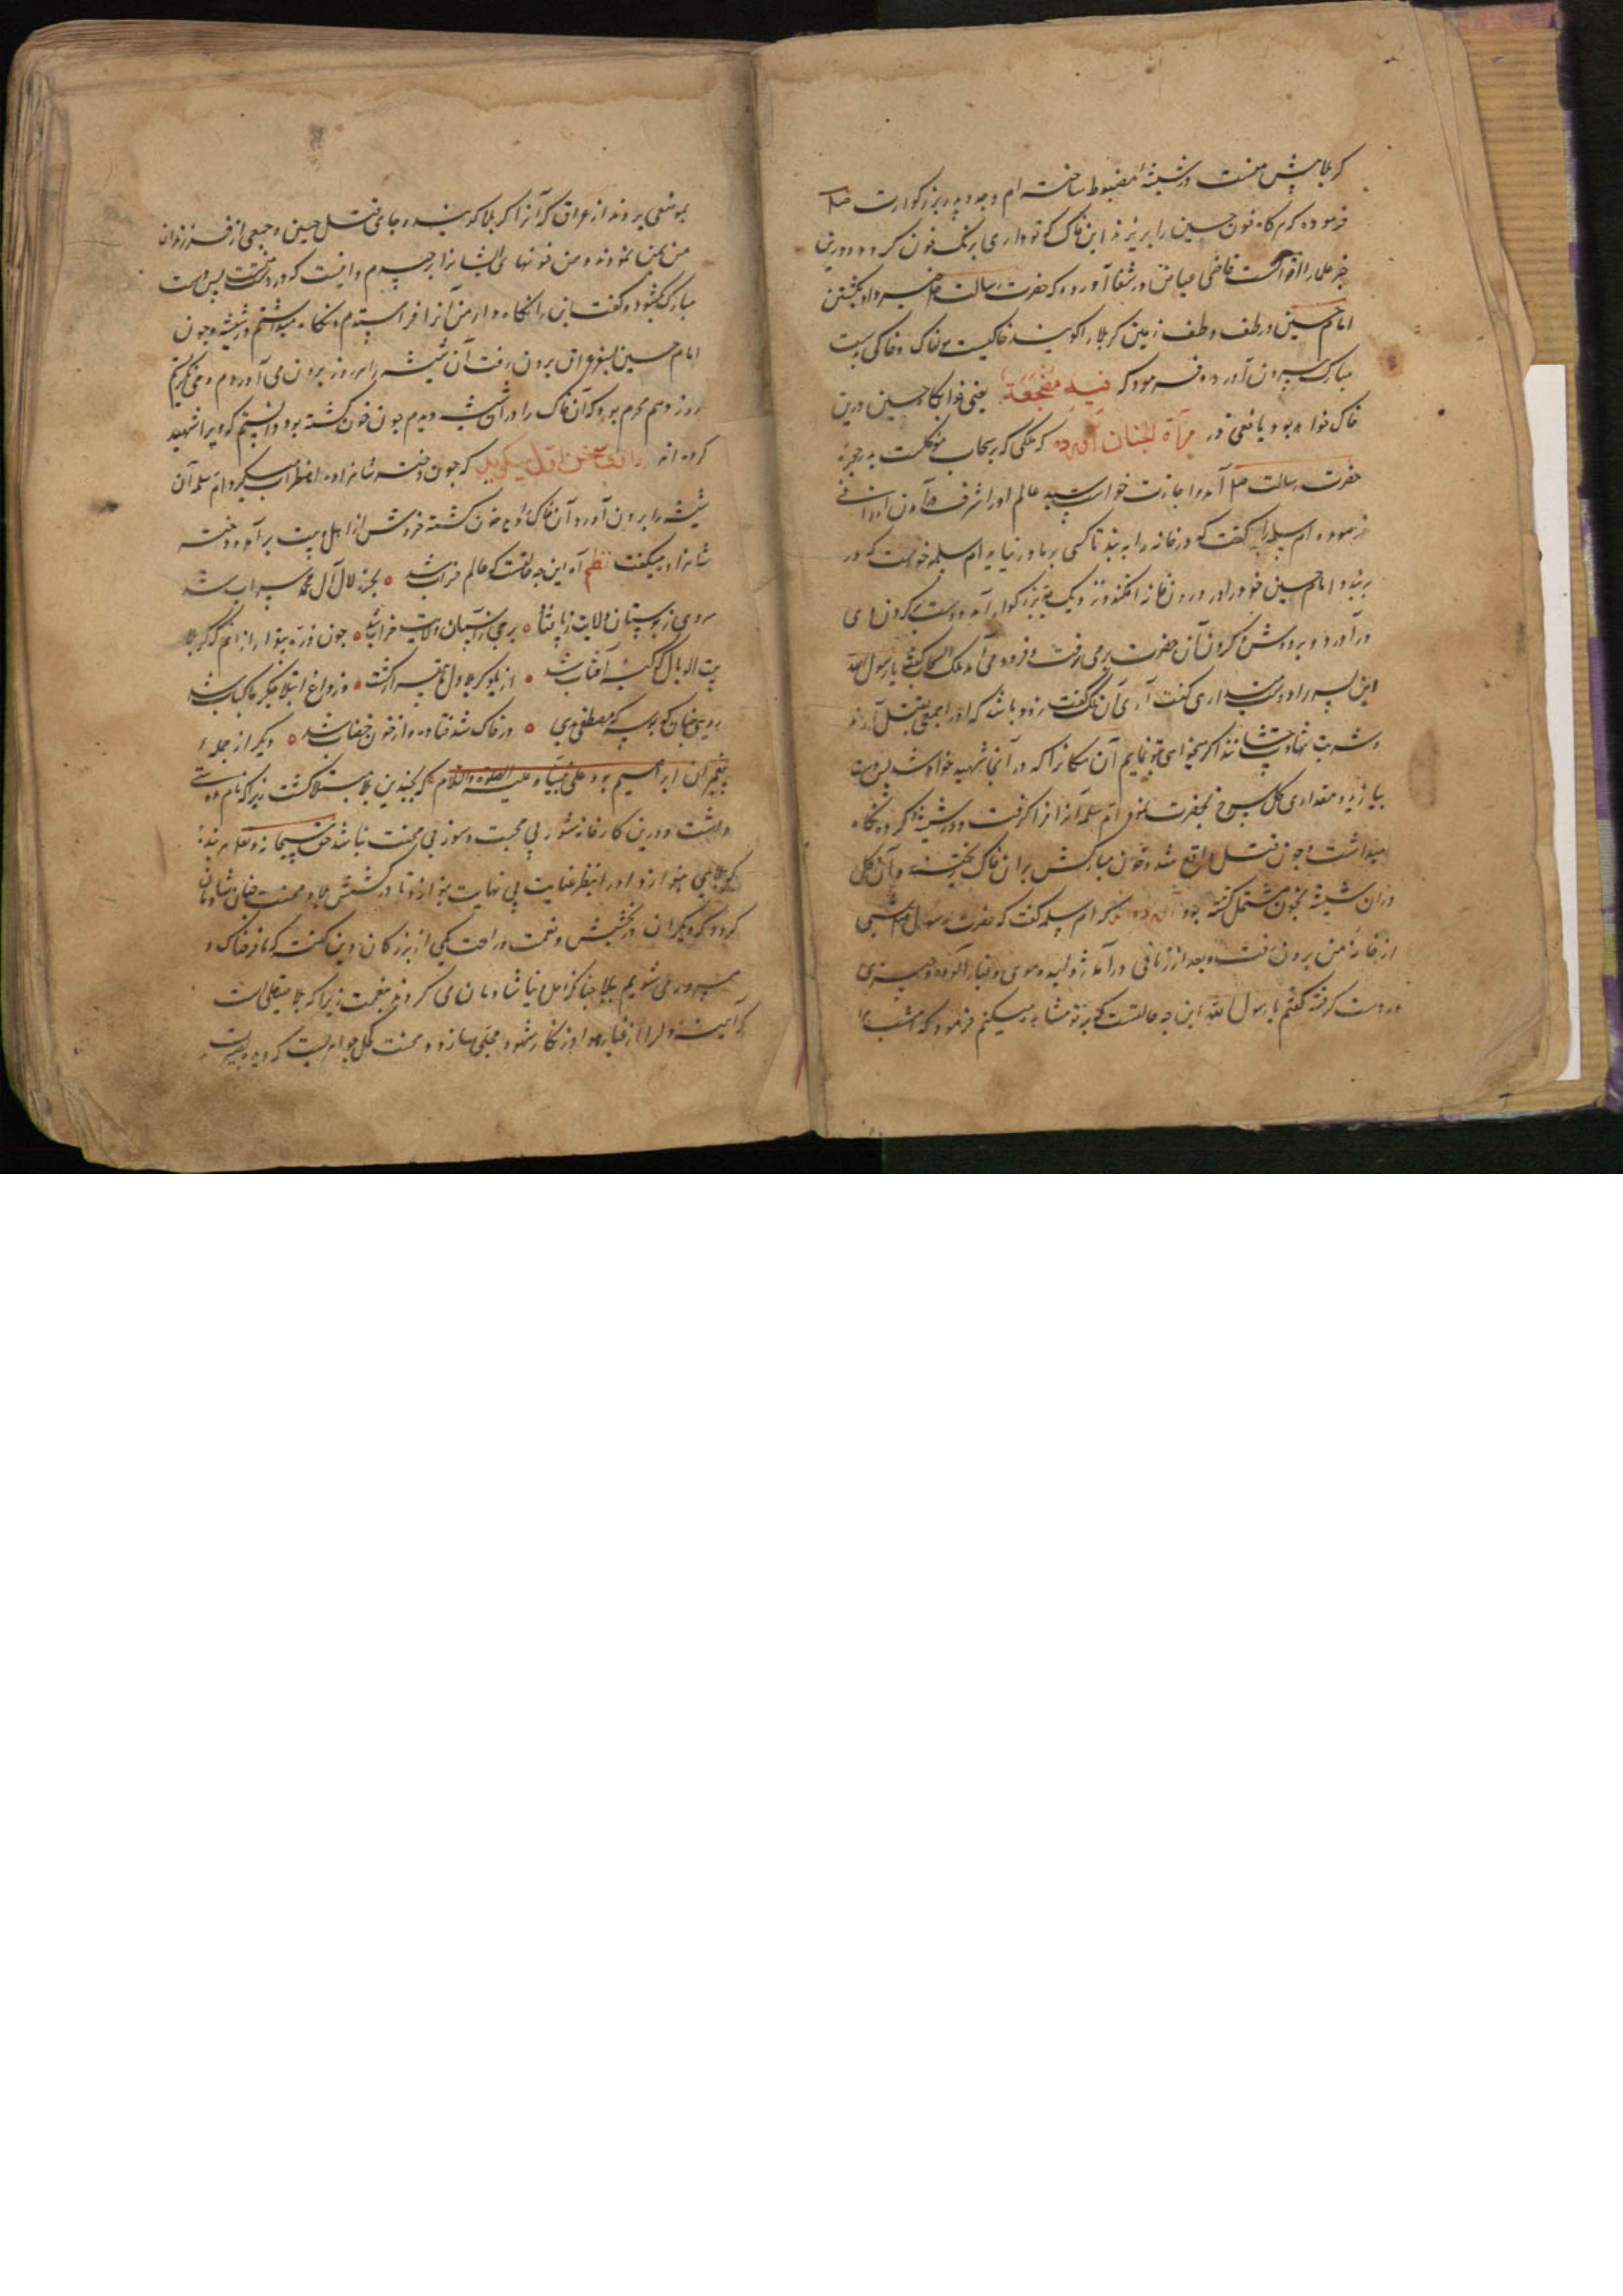 کربلا پیش منست در شیشهٔ مضبوط ساخته ام و جد و پدر بزرگوارت صلعم
فرموده که هرگاه خون حسین را بریزند این خاک که تو داری برنگ خون گردد و درین
خبر علما را اقوالست قاضی عیاض در شفا آورده که حضرت رسالت صلعم خبر داد بکشتن
امام حسین در طف و طف زمین کربلا را گویند خاکیست خاک و خاکی بدست
مبارک بیرون آورد و فرمود که فیه مضجعه یعنی خوابگاه حسین درین
خاک خواهد بود و یافعی در مرآة الجنان آورده که ملکی که بر سحاب موکلست به حجرهٔ
حضرت رسالت صلعم آمد و اجازت خواست سید عالم او را شرف در آمدن ارزانی
فرمود و ام سلمه را گفت که در خانه را به بند تا کسی بر ما در نیاید ام سلمه خواست که در
به بندد امام حسین خود را در درون خانه افکند و نزدیک جد بزرگوار آمد و دست بگردن وی
در آورد و بر دوش و گردن آن حضرت بر می رفت و فرود می آمد ملک السحاب گفت یا رسول الله
این پسر را دوست میداری گفت آری آن ملک گفت زود باشد که او را جمعی بقتل آرند
و شربت شهادت چشانند اگر میخواهی بتو نمایم آن مکان را که در آنجا شهید خواهد شد پس دست
بیازید و مقداری گل سرخ بحضرت نمود ام سلمه آنرا فرا گرفت و در شیشهٔ کرده نگاه
میداشت و چون قتل واقع شد و خون مبارکش بر آن خاک ریخت و آن گل
در آن شیشه بخون مشتمل گشته بود آورده اند که ام سلمه گفت که حضرت رسول صلعم شبی
از خانهٔ من برون رفت و بعد از زمانی در آمد ژولیده موی و غبار آلوده و چیزی
در دست گرفته گفتم یا رسول الله این چه حالتست که بر تو مشاهده میکنم فرمود که امشب مرا
بموضعی بردند از عراق که آنرا کربلا گویند و جای قتل حسین و جمعی از فرزندان
من بمن نمودند و من خونهای ایشانرا بر چیدم و اینست که در دست منست پس دست
مبارک بگشود و گفت این را نگاه دار من آنرا فرا ستدم و نگاه میداشتم در شیشه و چون
امام حسین بسفر عراق برون رفت آن شیشه را هر روز برون می آوردم و می نگریستم
روز دهم محرم بود که آن خاک را در آن شیشه دیدم چون خون گشته بود دانستم که ویرا شهید
کرده اند راوی سخن اول میگوید که چون دختر شاهزاده اضطراب میکرد ام سلمه آن
شیشه را برون آورد و آن خاک را دید خون گشته خروش از اهل بیت بر آمد و دختر
شاهزاده میگفت نظم آه این چه حالتست که عالم خراب شد ○ بحر زلال آل محمد سراب شد
سروی ز بوستان ولایت ز پا فتاد ○ برجی ز آسمان هدایت خراب شد ○ چون ذره بیقرار از آنم که کربلا
بیت الوبال کوکبهٔ آفتاب شد ○ از بلوکربلا دل ما قیر از گشت ○ وز داغ ابتلا جگر ما کباب شد
رویی چنان که بوسه گه مصطفی بدی ○ در خاک شد فتاده و از خون خضاب شد ○ دیگر از جملهٔ
پیغمبران ابراهیم بود علی نبینا و علیه الصلوة والسلام که بچندین بلا مبتلا گشت زیرا که نام دوستی
داشت و درین کارخانه شور بی محبت و سوز بی محنت نباشد حق سبحانه و تعالی هر بندهٔ
که بلایی بنوازد او را بنظر عنایت بی نهایت بنوازد تا در کشش بلا و محنت چنان شادمان
گردد که دیگران در بخشش و نعمت و راحت یکی از بزرگان دین گفته که ما فرحناک و
مسرور می شویم ببلا چنانکه اهل دنیا شادمان می گردند بنعمت زیرا که بلا صیقلی است
که آیینهٔ دل را از غبار هوا و زنگار شهود مجلی سازد و محنت کحل جواهریست که دیده بصیرت